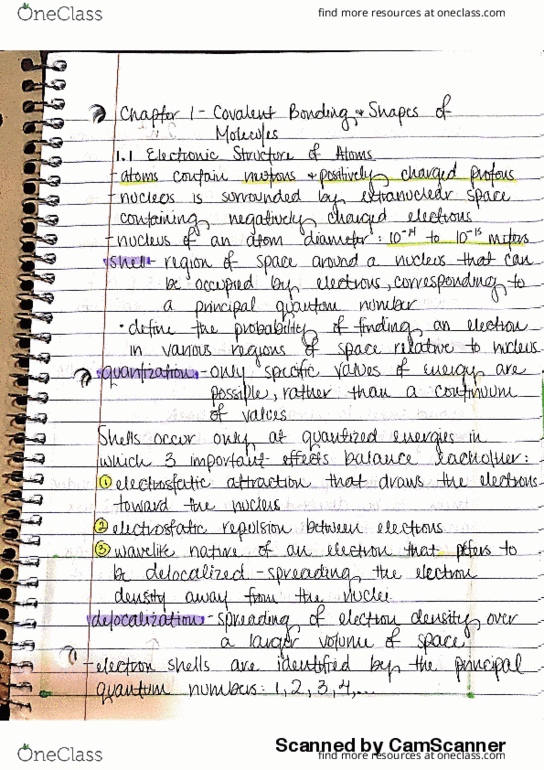 OneClass
find more resources at oneclass.com
Chapter 1 - Covalent Bonding & Shapes of
Molecules
1.1 Electronic Structure of Atoms
- atoms contain neutrons & positively charged protons
- nucleos is surrounded by extranuclear space
containing negatively charged electrons
- nucleus of an atom diameter: 10⁻¹⁴ to 10⁻¹⁵ meters
shell - region of space around a nucleus that can
be occupied by electrons, corresponding to
a principal quantum number
• define the probability of finding an electron
in various regions of space relative to nucleus
quantization - only specific values of energy are
possible, rather than a continuum
of values
Shells occur only at quantized energies in
which 3 important effects balance eachother:
① electrostatic attraction that draws the electrons
toward the nucleus
② electrostatic repulsion between electrons
③ wavelike nature of an electron that prefers to
be delocalized - spreading the electron
density away from the nuclei
delocalization - spreading of electron density over
a larger volume of space
- electron shells are identified by the principal
quantum numbers: 1, 2, 3, 4, ...
Scanned by CamScanner
OneClass
find more resources at oneclass.com